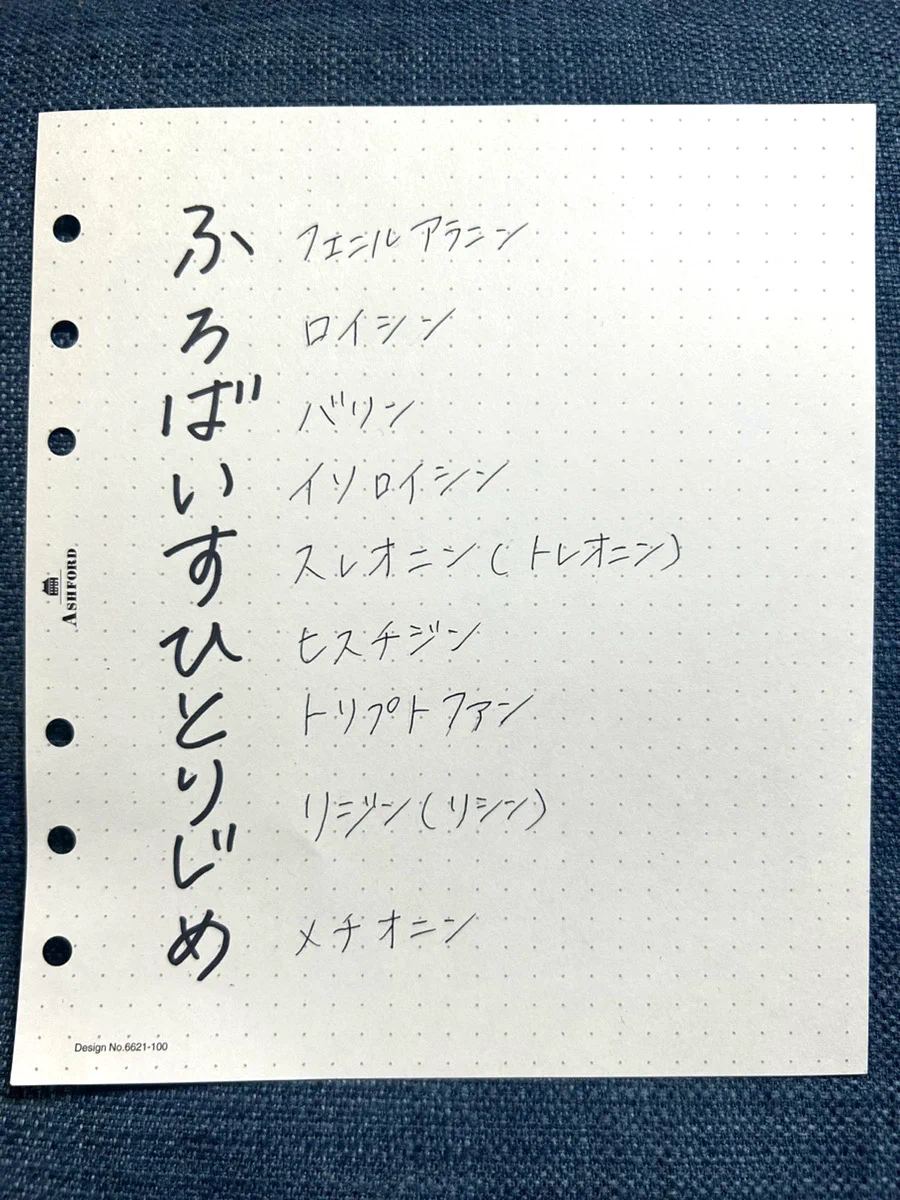 ふ フェニルアラニン
ろ ロイシン
ば バリン
い イソロイシン
す スレオニン(トレオニン)
ひ ヒスチジン
と トリプトファン
り リジン(リシン)
じ
め メチオニン
ASHFORD
Design No.6621-100